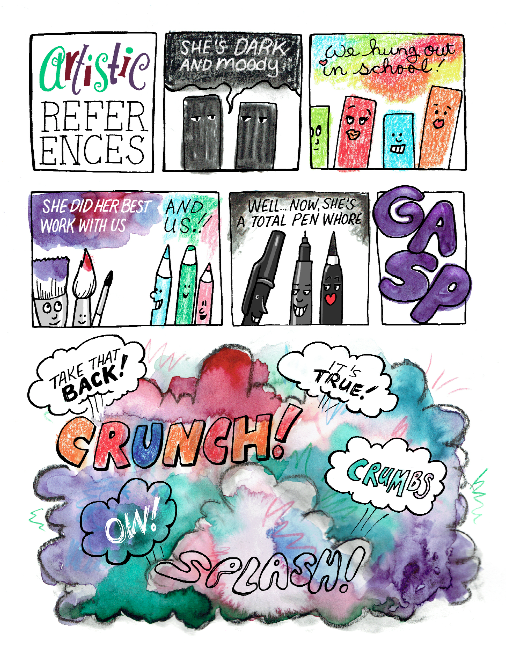 Artistic
REFER
ENCES
SHE'S DARK
AND moody
We hung out
in school!
SHE DID HER BEST
WORK WITH US
AND
US!!
WELL...NOW, SHE'S
A TOTAL PEN WHORE
GA
SP
TAKE THAT
BACK!
IT'S
TRUE!
CRUNCH!
CRUMBS
OW!
SPLASH!